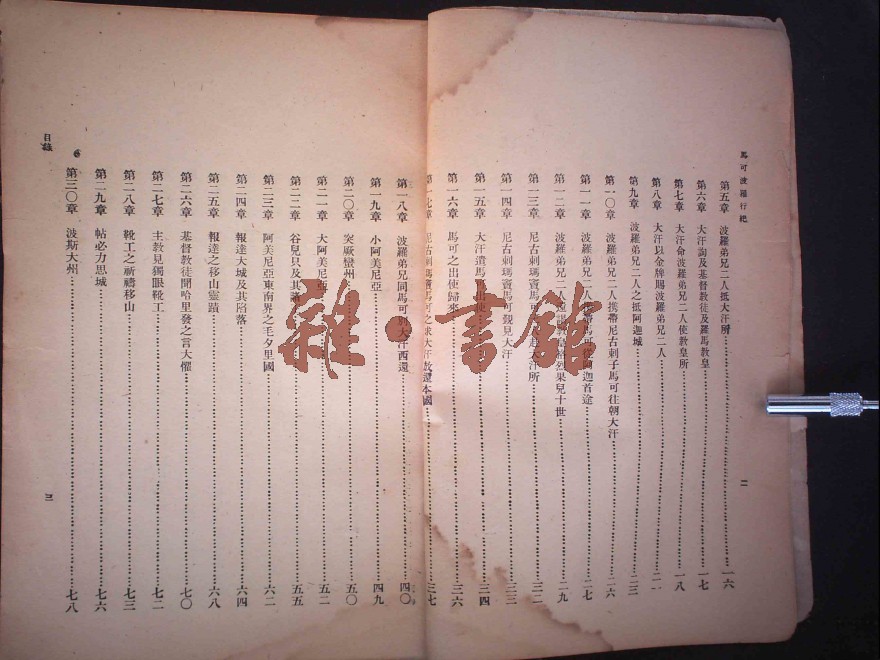 馬可波羅行紀
二
第五章 波羅弟兄二人抵大汗所 一六
第六章 大汗詢及基督教徒及羅馬教皇 一七
第七章 大汗命波羅弟兄二人使教皇所 一八
第八章 大汗以金牌賜波羅弟兄二人 二一
第九章 波羅弟兄二人之抵阿迦城 二三
第一〇章 波羅弟兄二人携帶尼古剌子馬可往朝大汗 二六
第一一章 波羅弟兄二人 馬可 迦首途 二七
第一二章 波羅弟兄二人 果兒十世 二九
第一三章 尼古剌瑪竇馬可 大汗所 三二
第一四章 尼古剌瑪竇馬可覲見大汗 三三
第一五章 大汗遣馬可出使 三四
第一六章 馬可之出使歸來 三六
第一七章 尼古剌瑪竇馬可之求大汗放還本國 三七
第一八章 波羅弟兄同馬可別大汗西還 四〇
第一九章 小阿美尼亞 四九
第二〇章 突厥蠻州 五〇
第二一章 大阿美尼亞 五二
第二二章 谷兒只及其 五五
第二三章 阿美尼亞東南界之毛夕里國 六二
第二四章 報達大城及其陷落 六四
第二五章 報達之移山靈蹟 六八
第二六章 基督教徒聞哈里發之言大懼 七〇
第二七章 主教見獨眼靴工 七二
第二八章 靴工之祈禱移山 七三
第二九章 帖必力思城 七六
第三〇章 波斯大州 七八
6
目錄
三
雜·書館